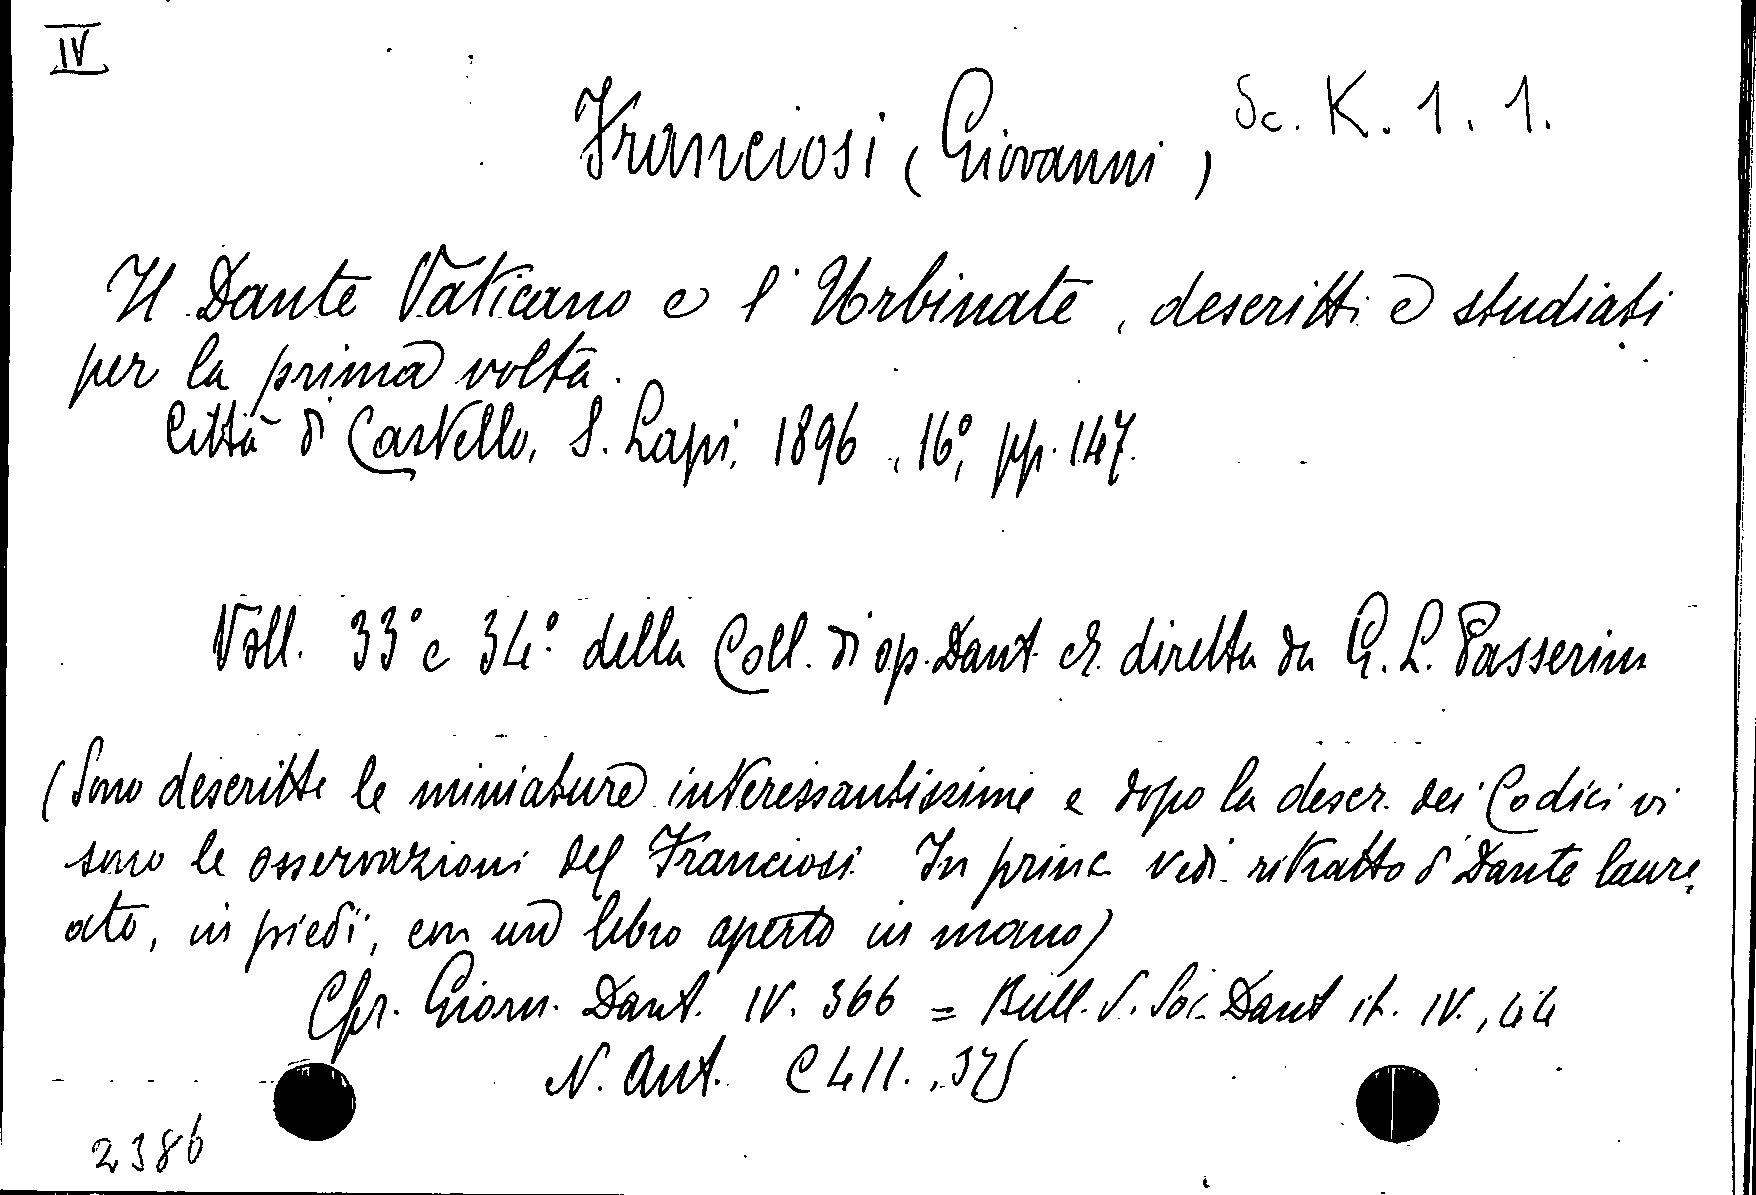 IV
Franciosi (Giovanni) Sc. K. 1. 1.
Il Dante Vaticano e l'Urbinate, descritti e studiati
per la prima volta.
Città di Castello, S. Lapi, 1896, 16°, pp. 147.
Voll. 33° e 34° della Coll. di op. Dant. diretta da G. L. Passerini
(Sono descritte le miniature interessantissime e dopo la descr. dei Codici vi
sono le osservazioni del Franciosi. In princ. vedi ritratto di Dante laure,
ato, in piedi, con un libro aperto in mano)
Cfr. Giorn. Dant. IV. 366 = Bull. d. Soc. Dant it. IV., 44
N. Ant.
2386